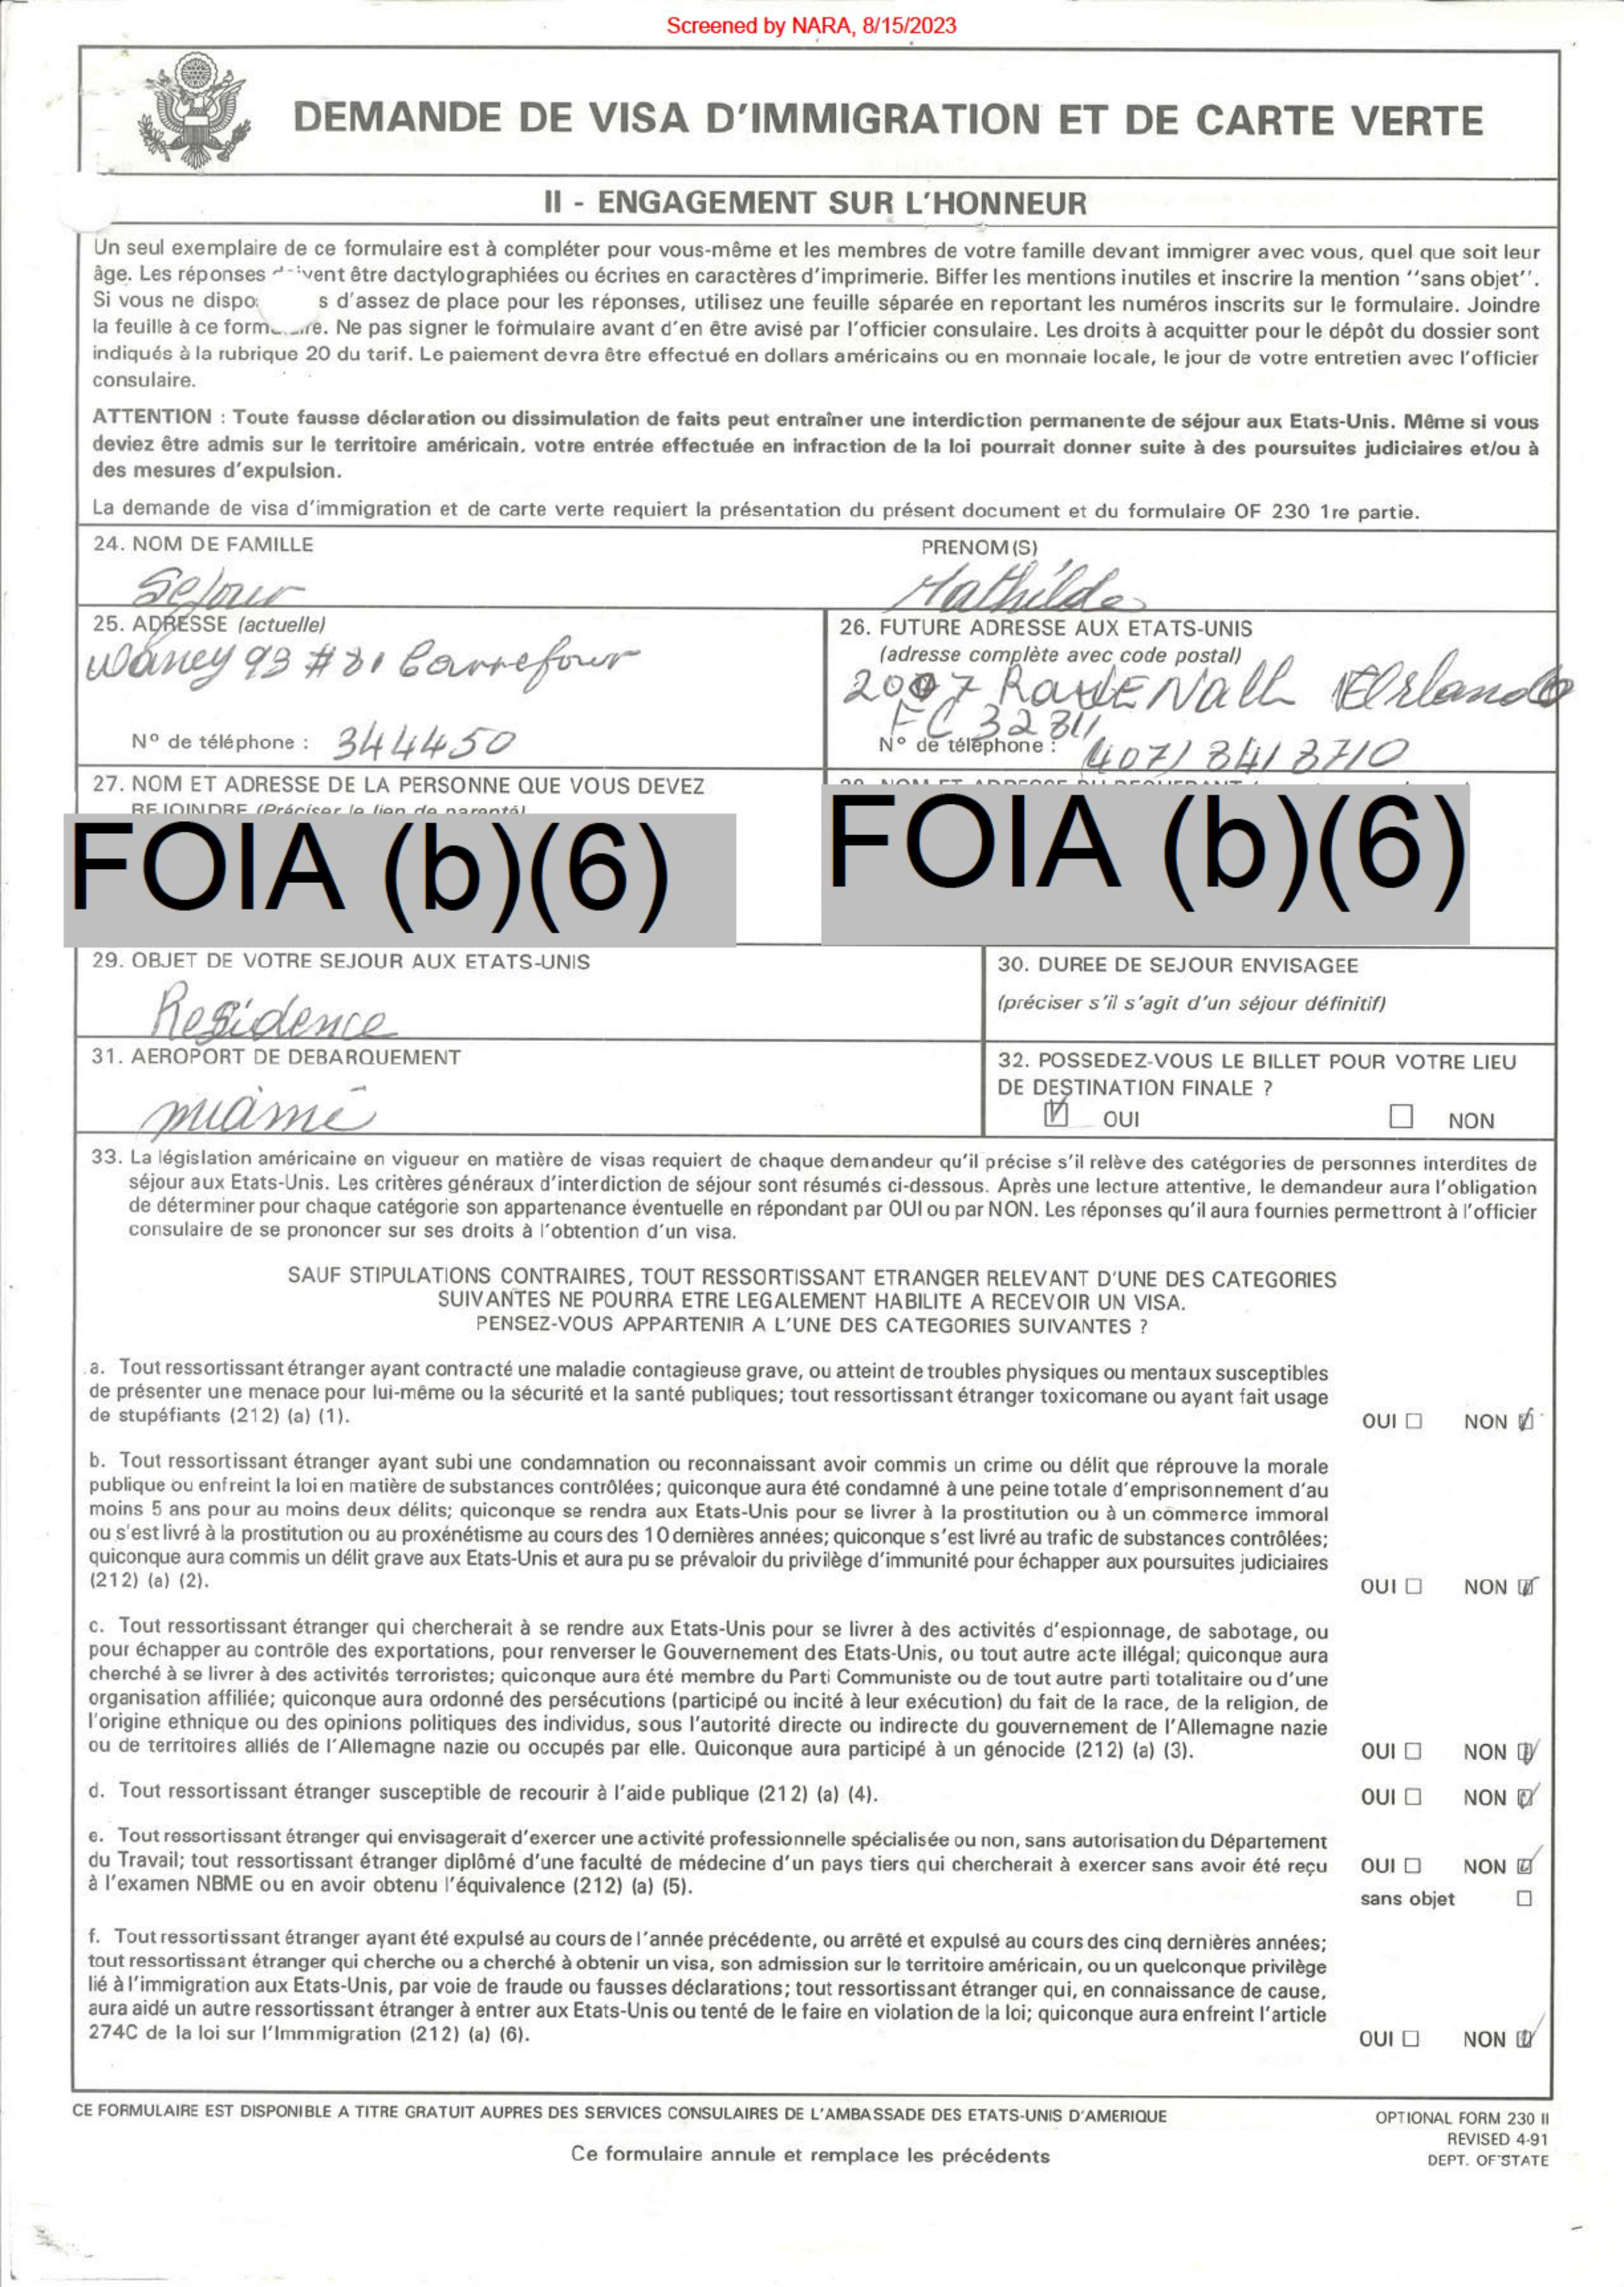 Screened by NARA, 8/15/2023
DEMANDE DE VISA D'IMMIGRATION ET DE CARTE VERTE
II - ENGAGEMENT SUR L'HONNEUR
Un seul exemplaire de ce formulaire est à compléter pour vous-même et les membres de votre famille devant immigrer avec vous, quel que soit leur
âge. Les réponses ivent être dactylographiées ou écrites en caractères d'imprimerie. Biffer les mentions inutiles et inscrire la mention ''sans objet''.
Si vous ne dispo s d'assez de place pour les réponses, utilisez une feuille séparée en reportant les numéros inscrits sur le formulaire. Joindre
la feuille à ce form re. Ne pas signer le formulaire avant d'en être avisé par l'officier consulaire. Les droits à acquitter pour le dépôt du dossier sont
indiqués à la rubrique 20 du tarif. Le paiement devra être effectué en dollars américains ou en monnaie locale, le jour de votre entretien avec l'officier
consulaire.
ATTENTION : Toute fausse déclaration ou dissimulation de faits peut entraîner une interdiction permanente de séjour aux Etats-Unis. Même si vous
deviez être admis sur le territoire américain, votre entrée effectuée en infraction de la loi pourrait donner suite à des poursuites judiciaires et/ou à
des mesures d'expulsion.
La demande de visa d'immigration et de carte verte requiert la présentation du présent document et du formulaire OF 230 1re partie.
24. NOM DE FAMILLE PRENOM(S)
Sejour Mathilde
25. ADRESSE (actuelle)
Waney 93 #81 Carrefour
N° de téléphone : 344450
26. FUTURE ADRESSE AUX ETATS-UNIS
(adresse complète avec code postal)
2007 Orlando
32811
N° de téléphone : (407) 841 8710
27. NOM ET ADRESSE DE LA PERSONNE QUE VOUS DEVEZ
REJOINDRE (Préciser le lien de parenté)
FOIA (b)(6)
28. NOM ET ADRESSE DU REQUERANT
FOIA (b)(6)
29. OBJET DE VOTRE SEJOUR AUX ETATS-UNIS
Residence
30. DUREE DE SEJOUR ENVISAGEE
(préciser s'il s'agit d'un séjour définitif)
31. AEROPORT DE DEBARQUEMENT
miami
32. POSSEDEZ-VOUS LE BILLET POUR VOTRE LIEU
DE DESTINATION FINALE ?
☑ OUI ☐ NON
33. La législation américaine en vigueur en matière de visas requiert de chaque demandeur qu'il précise s'il relève des catégories de personnes interdites de
séjour aux Etats-Unis. Les critères généraux d'interdiction de séjour sont résumés ci-dessous. Après une lecture attentive, le demandeur aura l'obligation
de déterminer pour chaque catégorie son appartenance éventuelle en répondant par OUI ou par NON. Les réponses qu'il aura fournies permettront à l'officier
consulaire de se prononcer sur ses droits à l'obtention d'un visa.
SAUF STIPULATIONS CONTRAIRES, TOUT RESSORTISSANT ETRANGER RELEVANT D'UNE DES CATEGORIES
SUIVANTES NE POURRA ETRE LEGALEMENT HABILITE A RECEVOIR UN VISA.
PENSEZ-VOUS APPARTENIR A L'UNE DES CATEGORIES SUIVANTES ?
a. Tout ressortissant étranger ayant contracté une maladie contagieuse grave, ou atteint de troubles physiques ou mentaux susceptibles
de présenter une menace pour lui-même ou la sécurité et la santé publiques; tout ressortissant étranger toxicomane ou ayant fait usage
de stupéfiants (212) (a) (1).
OUI ☐ NON ☑
b. Tout ressortissant étranger ayant subi une condamnation ou reconnaissant avoir commis un crime ou délit que réprouve la morale
publique ou enfreint la loi en matière de substances contrôlées; quiconque aura été condamné à une peine totale d'emprisonnement d'au
moins 5 ans pour au moins deux délits; quiconque se rendra aux Etats-Unis pour se livrer à la prostitution ou à un commerce immoral
ou s'est livré à la prostitution ou au proxénétisme au cours des 10 dernières années; quiconque s'est livré au trafic de substances contrôlées;
quiconque aura commis un délit grave aux Etats-Unis et aura pu se prévaloir du privilège d'immunité pour échapper aux poursuites judiciaires
(212) (a) (2).
OUI ☐ NON ☑
c. Tout ressortissant étranger qui chercherait à se rendre aux Etats-Unis pour se livrer à des activités d'espionnage, de sabotage, ou
pour échapper au contrôle des exportations, pour renverser le Gouvernement des Etats-Unis, ou tout autre acte illégal; quiconque aura
cherché à se livrer à des activités terroristes; quiconque aura été membre du Parti Communiste ou de tout autre parti totalitaire ou d'une
organisation affiliée; quiconque aura ordonné des persécutions (participé ou incité à leur exécution) du fait de la race, de la religion, de
l'origine ethnique ou des opinions politiques des individus, sous l'autorité directe ou indirecte du gouvernement de l'Allemagne nazie
ou de territoires alliés de l'Allemagne nazie ou occupés par elle. Quiconque aura participé à un génocide (212) (a) (3).
OUI ☐ NON ☑
d. Tout ressortissant étranger susceptible de recourir à l'aide publique (212) (a) (4).
OUI ☐ NON ☑
e. Tout ressortissant étranger qui envisagerait d'exercer une activité professionnelle spécialisée ou non, sans autorisation du Département
du Travail; tout ressortissant étranger diplômé d'une faculté de médecine d'un pays tiers qui chercherait à exercer sans avoir été reçu
à l'examen NBME ou en avoir obtenu l'équivalence (212) (a) (5).
OUI ☐ NON ☑
sans objet ☐
f. Tout ressortissant étranger ayant été expulsé au cours de l'année précédente, ou arrêté et expulsé au cours des cinq dernières années;
tout ressortissant étranger qui cherche ou a cherché à obtenir un visa, son admission sur le territoire américain, ou un quelconque privilège
lié à l'immigration aux Etats-Unis, par voie de fraude ou fausses déclarations; tout ressortissant étranger qui, en connaissance de cause,
aura aidé un autre ressortissant étranger à entrer aux Etats-Unis ou tenté de le faire en violation de la loi; quiconque aura enfreint l'article
274C de la loi sur l'Immmigration (212) (a) (6).
OUI ☐ NON ☑
CE FORMULAIRE EST DISPONIBLE A TITRE GRATUIT AUPRES DES SERVICES CONSULAIRES DE L'AMBASSADE DES ETATS-UNIS D'AMERIQUE
Ce formulaire annule et remplace les précédents
OPTIONAL FORM 230 II
REVISED 4-91
DEPT. OF STATE